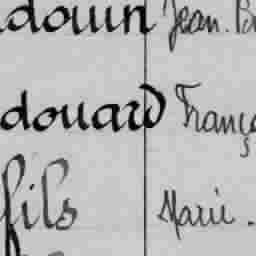 douin Jean. B
douard Franç
fils Marie.